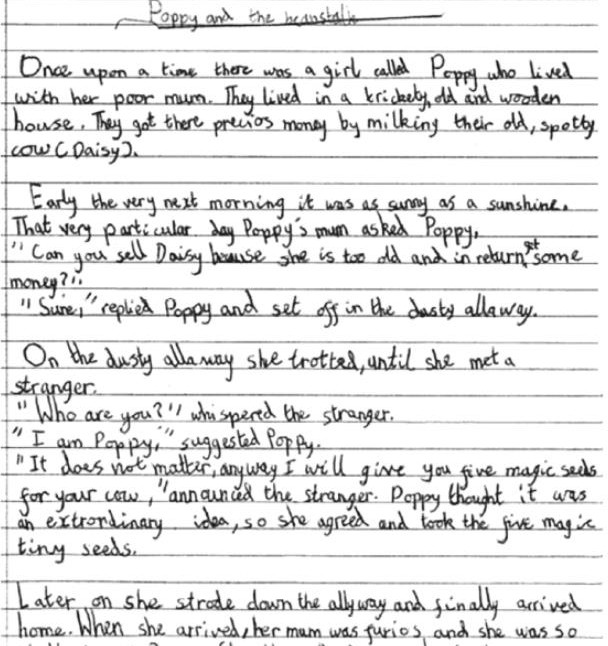 Poppy and the beanstalk
Once upon a time there was a girl called Poppy who lived
with her poor mum. They lived in a krickety, old and wooden
house. They got there precios money by milking their old, spotty
cow (Daisy).
Early the very next morning it was as sunny as a sunshine.
That very particular day Poppy's mum asked Poppy,
"Can you sell Daisy because she is too old and in return get some
money?"
"Sure," replied Poppy and set off in the dusty allaway.
On the dusty allaway she trotted, until she met a
stranger.
"Who are you?" whispered the stranger.
"I am Poppy," suggested Poppy.
"It does not matter, anyway I will give you five magic seeds
for your cow," announced the stranger. Poppy thought it was
an extrordinary idea, so she agreed and took the five magic
tiny seeds.
Later on she strode down the allyway and finally arrived
home. When she arrived, her mum was furios, and she was so